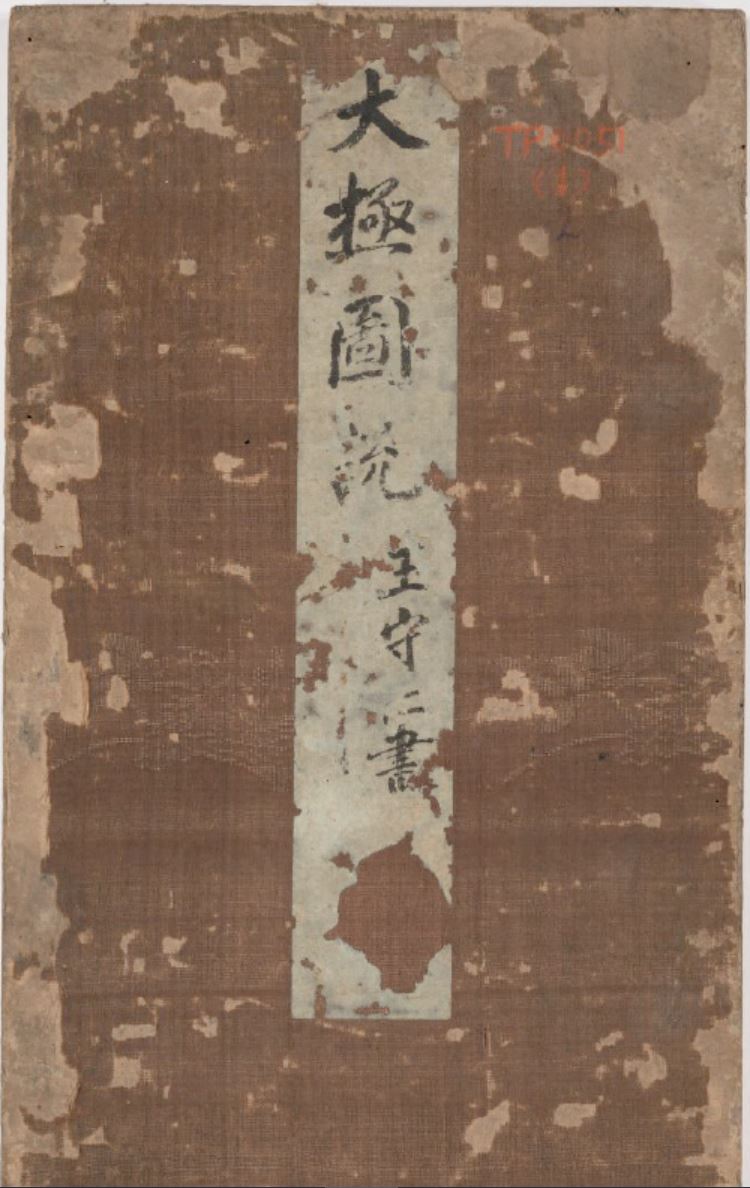 大極圖説
王守仁書
TP0051
(1)